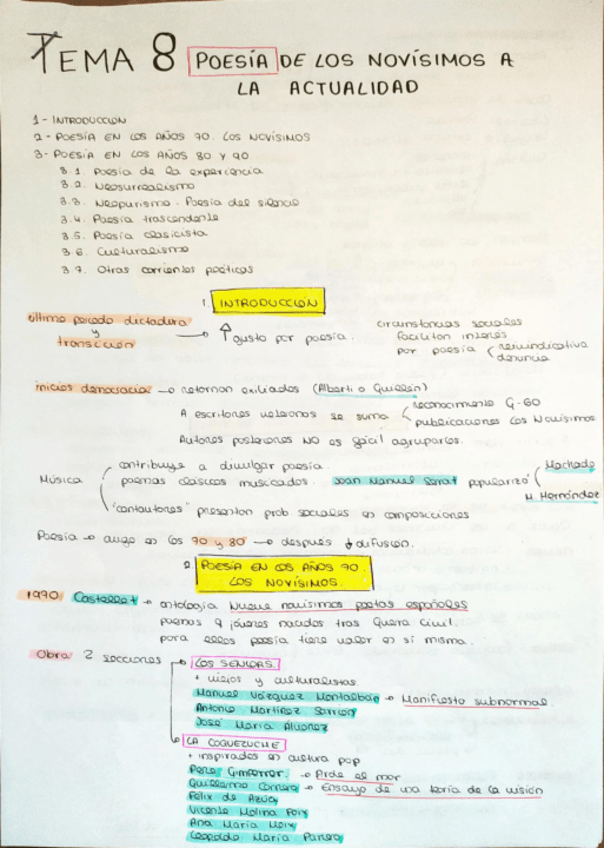 TEMA 8 POESÍA DE LOS NOVÍSIMOS A
LA ACTUALIDAD
1- INTRODUCCIÓN
2- POESÍA EN LOS AÑOS 70. LOS NOVÍSIMOS
3- POESÍA EN LOS AÑOS 80 Y 90
3.1. Poesía de la experiencia
3.2. Neosurrealismo
3.3. Neopurismo. Poesía del silencio
3.4. Poesía trascendente
3.5. Poesía clasicista
3.6. Culturalismo
3.7. Otras corrientes poéticas
1. INTRODUCCIÓN
último periodo dictadura
y
transición → ↑ gusto por poesía.
circunstancias sociales
facilitan interés
por poesía (reivindicativa
denuncia
inicios democracia → retornan exiliados (Alberti o Guillén)
A escritores veteranos se suma (reconocimiento G-60
publicaciones Los Novísimos
Autores posteriores NO es fácil agruparlos.
Música
contribuye a divulgar poesía.
poemas clásicos musicados. Joan Manuel Serrat popularizó (Machado
M. Hernández
"cantautores" presentan prob sociales en composiciones
Poesía → auge en los 70 y 80 → después ↓ difusión.
2. POESÍA EN LOS AÑOS 70.
LOS NOVÍSIMOS.
1970 Castellet → antología Nueve novísimos poetas españoles
poemas 9 jóvenes nacidos tras Guerra Civil.
para ellos poesía tiene valor en sí misma.
Obra 2 secciones
LOS SENIORS.
+ viejos y culturalistas.
Manuel Vázquez Montalbán → Manifiesto subnormal
Antonio Martínez Sarrión
José María Álvarez
LA COQUELUCHE
+ inspirados en cultura pop
Pere Gimferrer. → Arde el mar
Guillermo Carnero → Ensayo de una teoría de la visión
Félix de Azúa
Vicente Molina Foix
Ana María Moix
Leopoldo María Panero